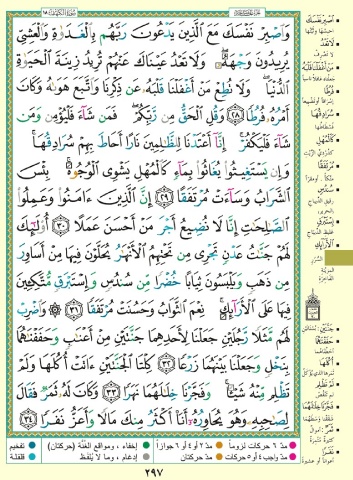 وَاصْبِرْ نَفْسَكَ مَعَ الَّذِينَ يَدْعُونَ رَبَّهُم بِالْغَدَوٰةِ وَالْعَشِيِّ
يُرِيدُونَ وَجْهَهُۥ ۖ وَلَا تَعْدُ عَيْنَاكَ عَنْهُمْ تُرِيدُ زِينَةَ الْحَيَوٰةِ
الدُّنْيَا ۖ وَلَا تُطِعْ مَنْ أَغْفَلْنَا قَلْبَهُۥ عَن ذِكْرِنَا وَاتَّبَعَ هَوَىٰهُ وَكَانَ
أَمْرُهُۥ فُرُطًا ٢٨ وَقُلِ الْحَقُّ مِن رَّبِّكُمْ ۖ فَمَن شَآءَ فَلْيُؤْمِن وَمَن
شَآءَ فَلْيَكْفُرْ ۚ إِنَّآ أَعْتَدْنَا لِلظَّٰلِمِينَ نَارًا أَحَاطَ بِهِمْ سُرَادِقُهَا ۚ
وَإِن يَسْتَغِيثُوا۟ يُغَاثُوا۟ بِمَآءٍ كَالْمُهْلِ يَشْوِى الْوُجُوهَ ۚ بِئْسَ
الشَّرَابُ وَسَآءَتْ مُرْتَفَقًا ٢٩ إِنَّ الَّذِينَ ءَامَنُوا۟ وَعَمِلُوا۟
الصَّٰلِحَٰتِ إِنَّا لَا نُضِيعُ أَجْرَ مَنْ أَحْسَنَ عَمَلًا ٣٠ أُو۟لَٰٓئِكَ
لَهُمْ جَنَّٰتُ عَدْنٍ تَجْرِى مِن تَحْتِهِمُ الْأَنْهَٰرُ يُحَلَّوْنَ فِيهَا مِنْ أَسَاوِرَ
مِن ذَهَبٍ وَيَلْبَسُونَ ثِيَابًا خُضْرًا مِّن سُندُسٍ وَإِسْتَبْرَقٍ مُّتَّكِـِٔينَ
فِيهَا عَلَى الْأَرَآئِكِ ۚ نِعْمَ الثَّوَابُ وَحَسُنَتْ مُرْتَفَقًا ٣١ وَاضْرِبْ
لَهُم مَّثَلًا رَّجُلَيْنِ جَعَلْنَا لِأَحَدِهِمَا جَنَّتَيْنِ مِنْ أَعْنَٰبٍ وَحَفَفْنَٰهُمَا
بِنَخْلٍ وَجَعَلْنَا بَيْنَهُمَا زَرْعًا ٣٢ كِلْتَا الْجَنَّتَيْنِ ءَاتَتْ أُكُلَهَا وَلَمْ
تَظْلِم مِّنْهُ شَيْـًٔا ۚ وَفَجَّرْنَا خِلَٰلَهُمَا نَهَرًا ٣٣ وَكَانَ لَهُۥ ثَمَرٌ فَقَالَ
لِصَٰحِبِهِۦ وَهُوَ يُحَاوِرُهُۥٓ أَنَا۠ أَكْثَرُ مِنكَ مَالًا وَأَعَزُّ نَفَرًا ٣٤
مدّ ٦ حركات لزوماً مدّ ٢ أو ٤ أو ٦ جوازاً إخفاء، ومواقع الغُنَّة (حركتان) تفخيم
مدّ واجب ٤ أو ٥ حركات مدّ حركتان إدغام، وما لا يُلفَظ قلقلة
٢٩٧